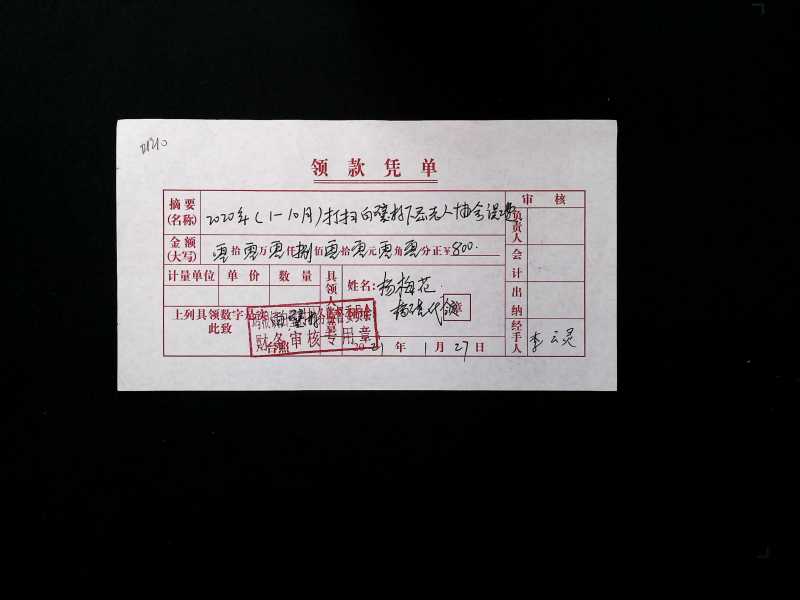 领款凭单
摘要(名称) 2020年(1-10月)打扫向壁村下 老人协会误
审核
负责人
金额(大写) 零拾零万零仟捌佰零拾零元零角零分正¥800.
会计
计量单位 单价 数量
具领人 姓名:杨梅花
代领
出纳
上列具领数字是实
此致
财务审核专用章
台照
2021年1月27日
经手人 李云灵